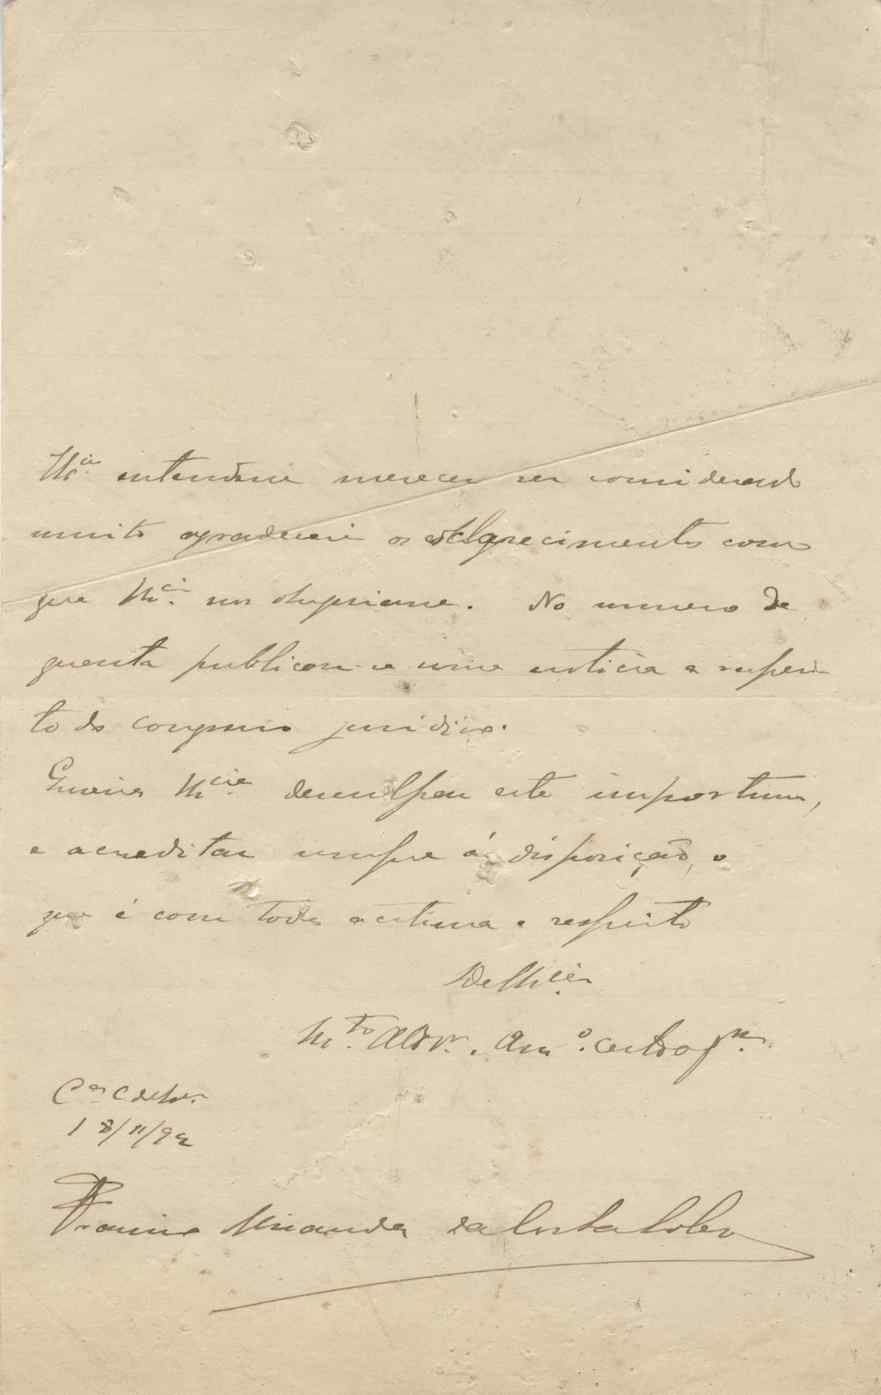 V. Ex.cia entender merecer ser considerado
muito agradecerei os esclarecimentos com
que V. Ex.cia nos obsequiar. No numero de
quenta publicou-se uma noticia a respei-
to do congresso juridico.
Queira V. Ex.cia desculpar este importuno,
e acreditar sempre á disposição, o
que é com toda a estima e respeito
De V. Ex.cia
M.to Ador. Am.o
18/11/92
Miranda da Costa Lobo